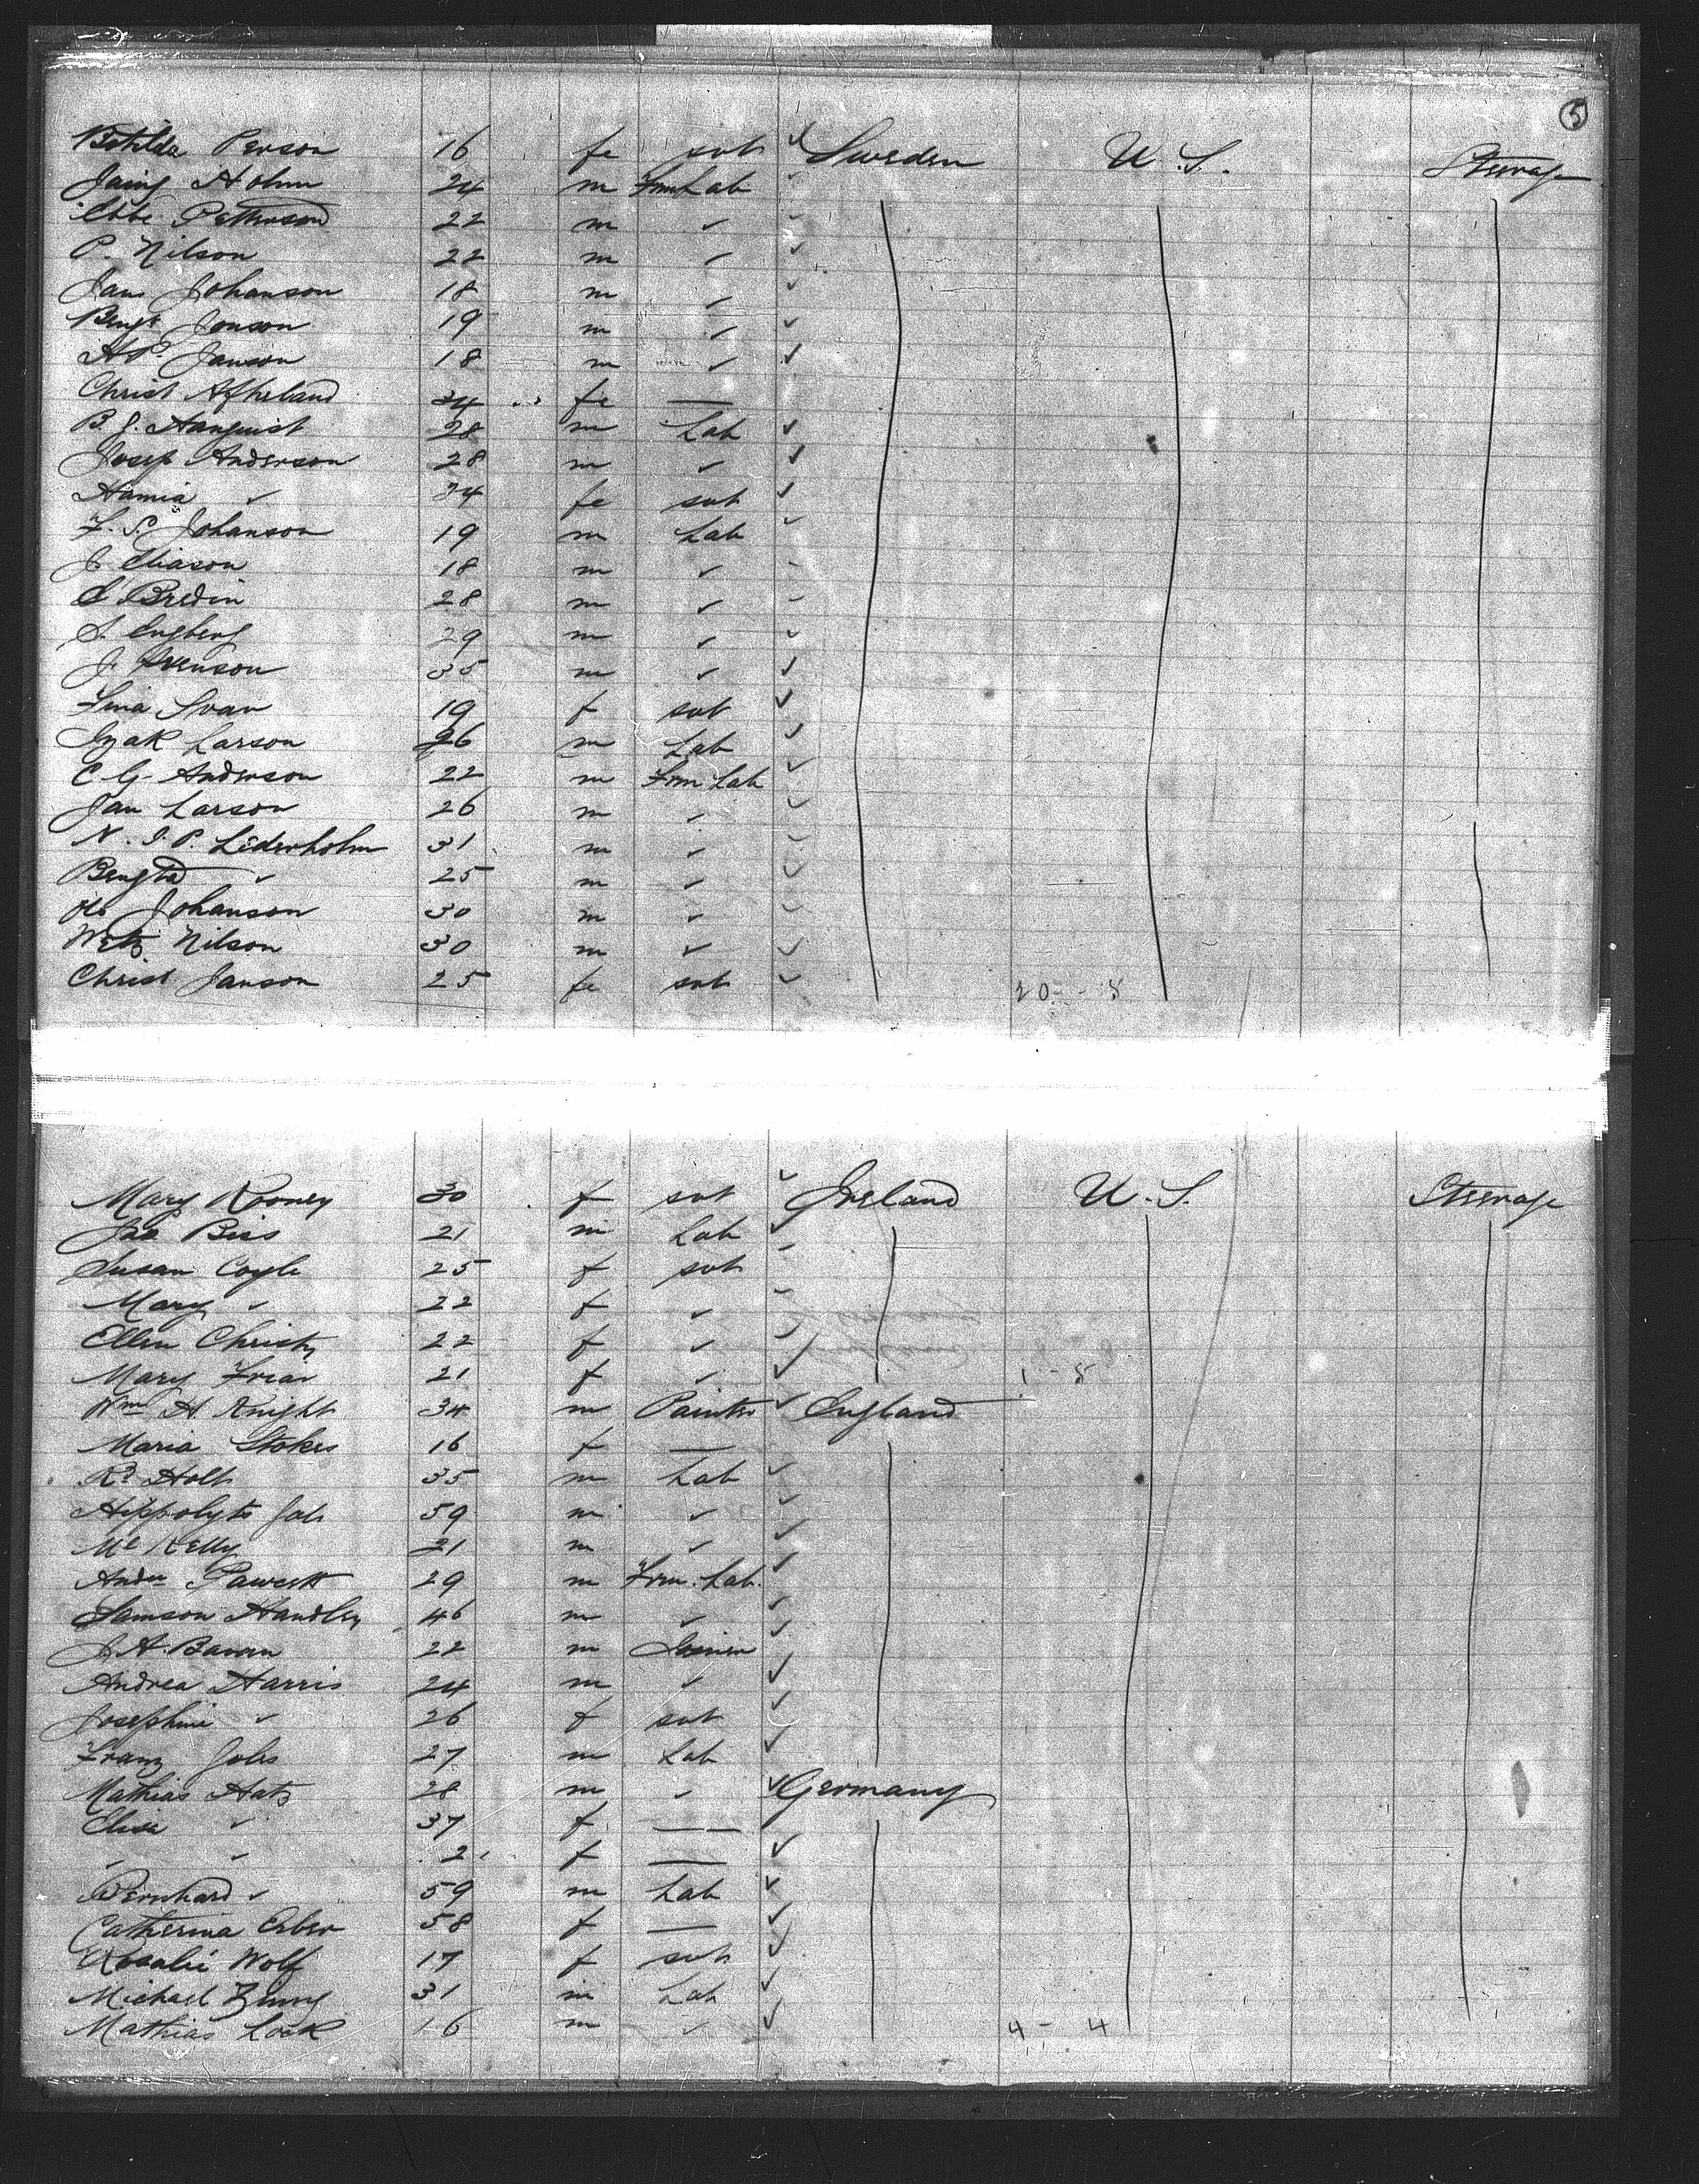 5
Bothilda Person 16 fe svt ✓ Sweden U.S. Steerage
Holm 24 m Frm Lab
Ebbe Petterson 22 m ✓ ✓
P. Nilson 22 m ✓ ✓
Jans Johanson 18 m ✓ ✓
Bengt Jonson 19 m ✓ ✓
H.P. Janson 18 m ✓ ✓
Christ 34 fe —
B. J. Hanquist 28 m Lab ✓
Josep Anderson 28 m ✓ ✓
Hamia ✓ 34 fe svt ✓
F. S. Johanson 19 m Lab ✓
J. Eliason 18 m ✓
Bredin 28 m ✓
S. Engberg 29 m ✓ ✓
J. Svenson 35 m ✓ ✓
Lina Svan 19 f svt ✓
Izak Larson 26 m Lab ✓
C. G. Anderson 22 m Frm Lab ✓
Jan Larson 26 m ✓ ✓
N. J. P. Lederholm 31 m ✓ ✓
Bengta ✓ 25 m ✓ ✓
Johanson 30 m ✓ ✓
Nilson 30 m ✓ ✓
Christ Janson 25 fe svt ✓ 20 - 5
Mary Rooney 30 f svt ✓ Ireland U.S. Steerage
Jas Biss 21 m Lab ✓
Susan Coyle 25 f svt
Mary ✓ 22 f ✓
Ellen Christy 22 f ✓ ✓
Mary Friar 21 f ✓ ✓ 1 - 5
Wm H. Knight 34 m Painter ✓ England
Maria Stokes 16 f —
Rd Holt 35 m Lab ✓
Hippolyte 59 m ✓ ✓
Ml Kelly 21 m ✓ ✓
Andw Fawcett 29 m Frm. Lab. ✓
Samson Handley 46 m ✓ ✓
J. A. 22 m Joiner ✓
Andrea Harris 24 m ✓ ✓
Josephine ✓ 26 f svt ✓
Franz 27 m Lab ✓
Mathias Hatz 28 m ✓ ✓ Germany
Elisa ✓ 37 f —
✓ ✓ 2 f — ✓
Bernhard ✓ 59 m Lab ✓
Catherina Erber 58 f — ✓
Rosalie Wolf 17 f svt ✓
Michael 31 m Lab ✓
Mathias Look 16 m ✓ ✓ 4 - 4